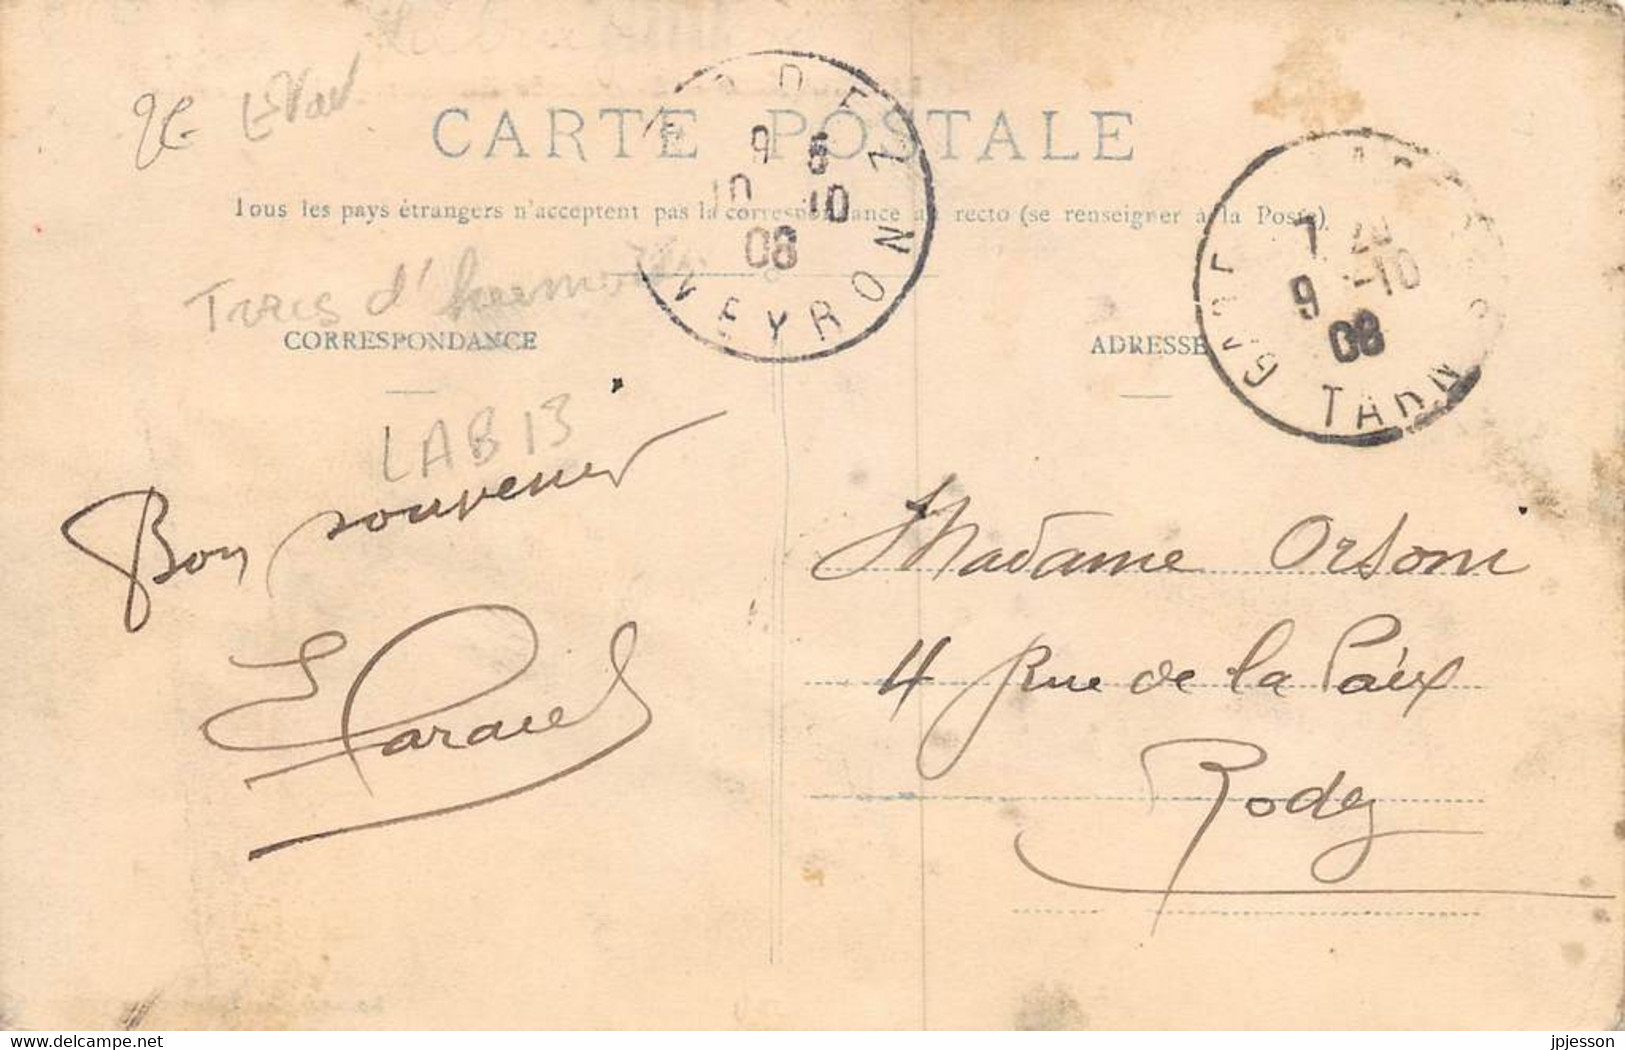 CARTE POSTALE
Tous les pays étrangers n'acceptent pas la correspondance au recto (se renseigner à la Poste)
RODEZ
9 5
10 10
08
AVEYRON
7 20
9 -10
08
GARE
TARN
CORRESPONDANCE
ADRESSE
LAB 13
Bon souvenir
Madame Orsoni
4 Rue de la Paix
Rodez
delcampe.net
jpjesson